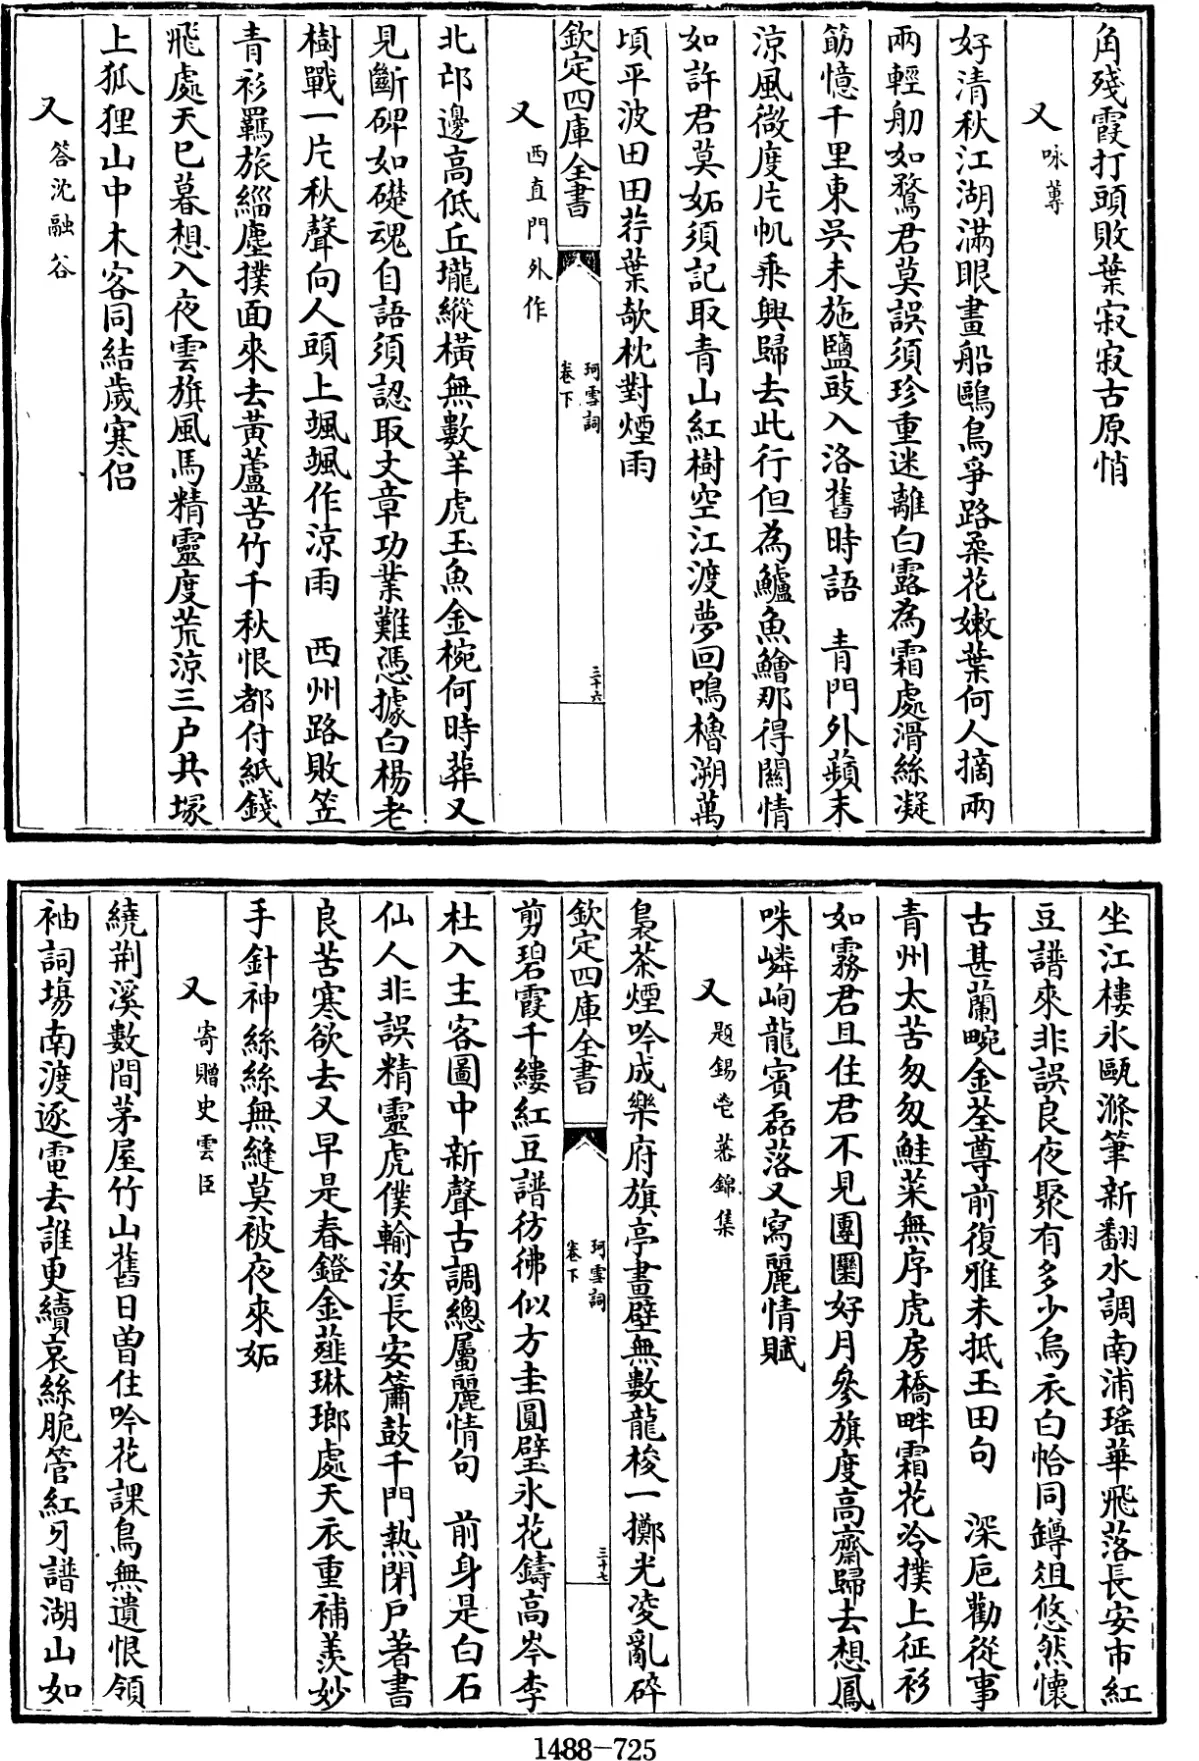 角殘霞打頭敗葉寂寂古原悄
又 咏蓴
好清秋江湖滿眼畫船鷗鳥爭路柔花嫩葉何人摘兩
兩輕舠如鶩君莫誤須珍重迷離白露為霜處滑絲凝
筯憶千里東吳未施鹽豉入洛舊時語 青門外蘋末
涼風微度片帆乘興歸去此行但為鱸魚鱠那得關情
如許君莫妬須記取青山紅樹空江渡夢回鳴櫓溯萬
頃平波田田荇葉欹枕對煙雨
欽定四庫全書 珂雪詞 卷下 三十六
又 西直門外作
北邙邊高低丘壠縱橫無數羊虎玉魚金椀何時葬又
見斷碑如礎魂自語須認取文章功業難憑據白楊老
樹戰一片秋聲向人頭上颯颯作涼雨 西州路敗笠
青衫羈旅緇塵撲面來去黃蘆苦竹千秋恨都付紙錢
飛處天已暮想入夜雲旗風馬精靈度荒涼三户共塚
上狐狸山中木客同結歲寒侣
又 答沈融谷
坐江樓氷甌滌筆新翻水調南浦瑤華飛落長安市紅
豆譜來非誤良夜聚有多少烏衣白帢同罇俎悠然懷
古甚蘭畹金荃尊前復雅未抵玉田句 深巵勸從事
青州太苦匆匆鮭菜無序虎房橋畔霜花冷撲上征衫
如霧君且住君不見團圞好月參旗度高齋歸去想鳳
咮嶙峋龍賓磊落又寫麗情賦
又 題錫鬯蕃錦集
裊茶煙吟成樂府旗亭畫壁無數龍梭一擲光凌亂碎
欽定四庫全書 珂雪詞 卷下 三十七
剪碧霞千縷紅豆譜彷彿似方圭圓璧氷花鑄高岑李
杜入主客圖中新聲古調總屬麗情句 前身是白石
仙人非誤精靈虎僕輸汝長安簫鼓千門熱閉户著書
良苦寒欲去又早是春鐙金薤琳瑯處天衣重補羨妙
手針神絲絲無縫莫被夜來妬
又 寄贈史雲臣
繞荆溪數間茅屋竹山舊日曽住吟花課鳥無遺恨領
袖詞塲南渡逐電去誰更續哀絲脆管紅牙譜湖山如
1488-725